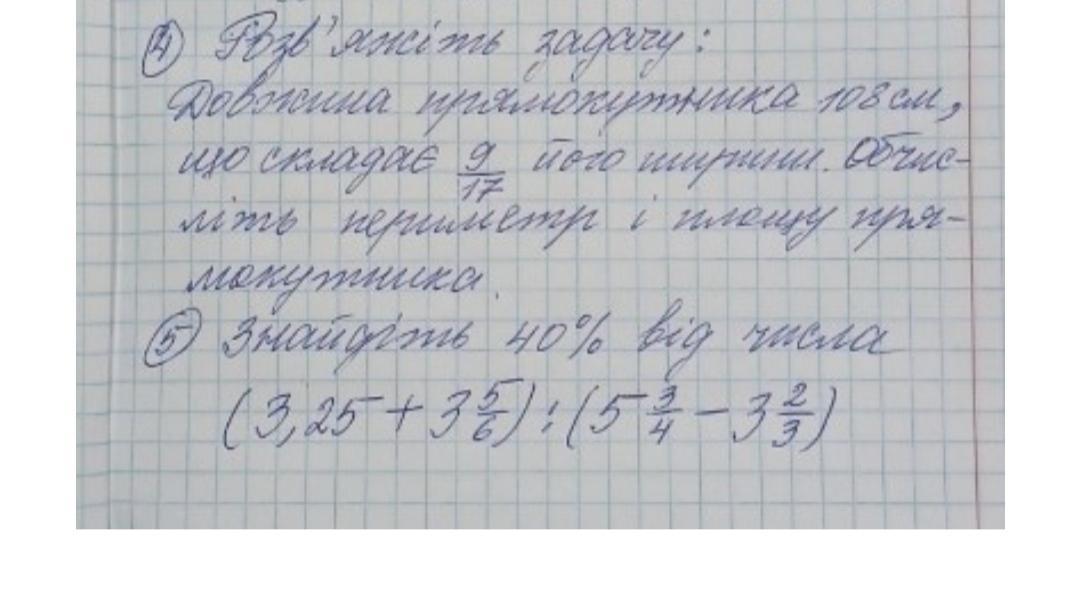 ④ Розв'яжіть задачу:
Довжина прямокутника 108 см,
що складає 9/17 його ширини. Обчис-
літь периметр і площу пря-
мокутника.
⑤ Знайдіть 40% від числа
(3,25 + 3 5/6) : (5 3/4 - 3 2/3)